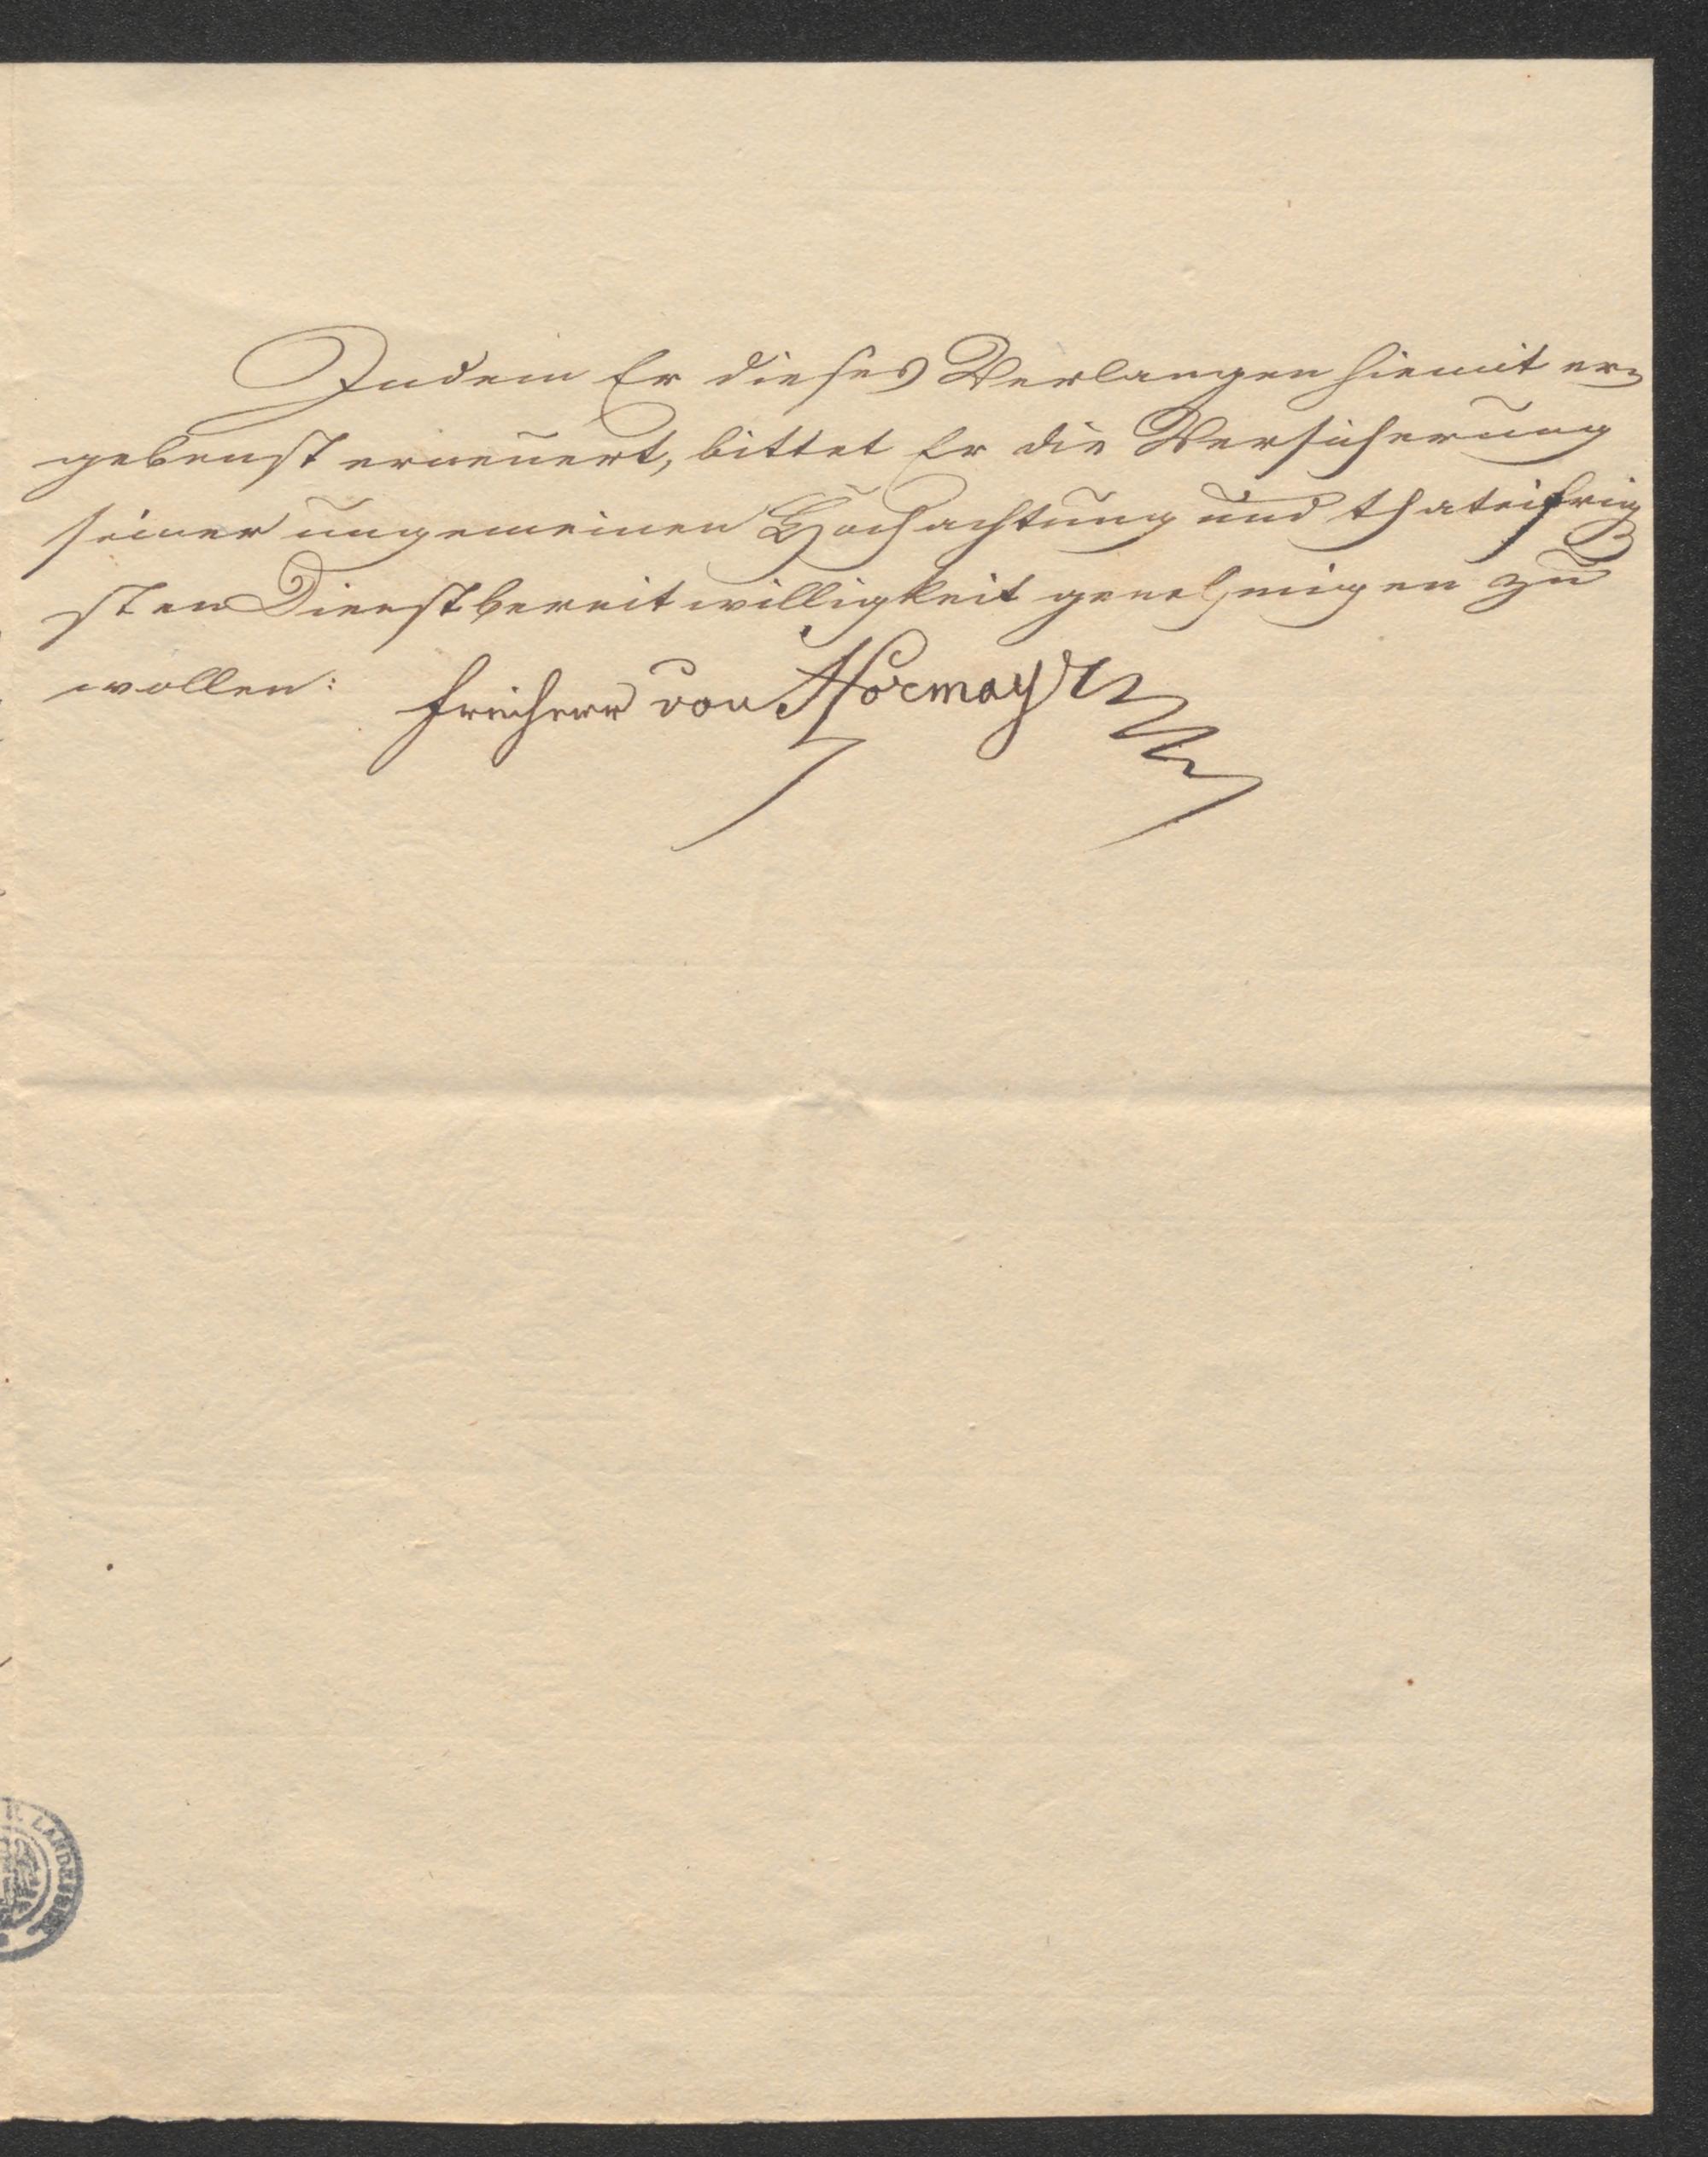 Indem Er dieses Verlangen hiemit er=
gebenst erneuert, bittet Er die Versicherung
seiner ungemeinen Hochachtung und thateifrig
sten Dienstbereitwilligkeit genehmigen zu
wollen:
Freiherr von Hormayr
LANDES